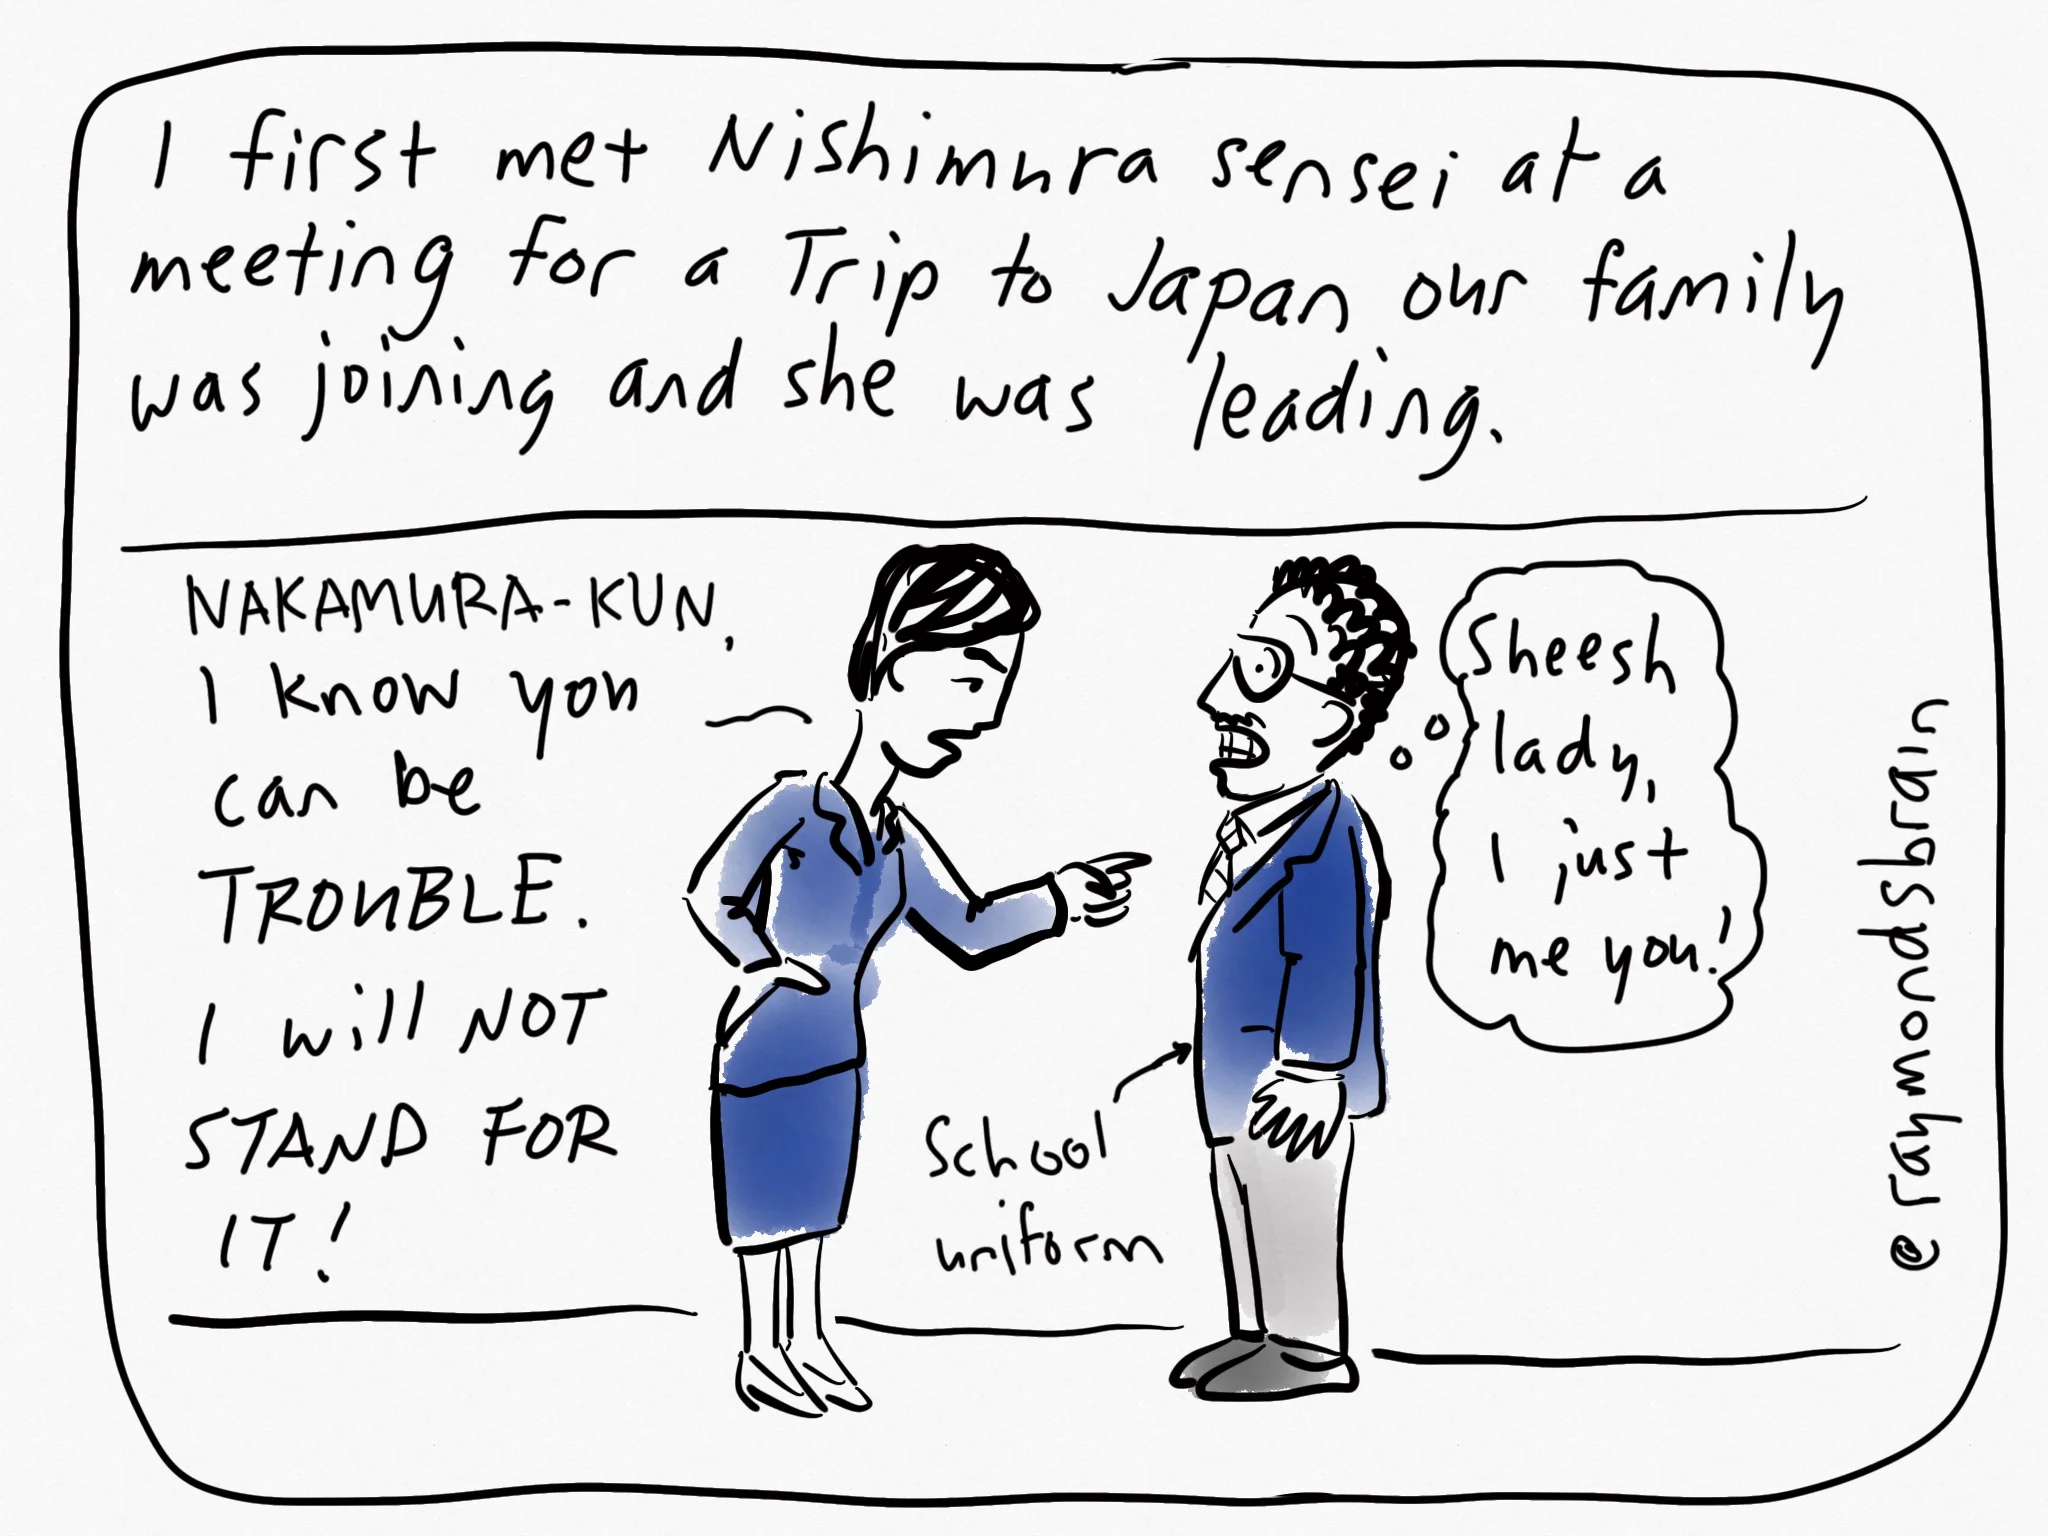 I first met Nishimura sensei at a
meeting for a Trip to Japan our family
was joining and she was leading.
NAKAMURA-KUN,
I know you
can be
TROUBLE.
I will NOT
STAND FOR
IT!
Sheesh
lady,
I just
me you!
School
uniform
@raymondsbrain